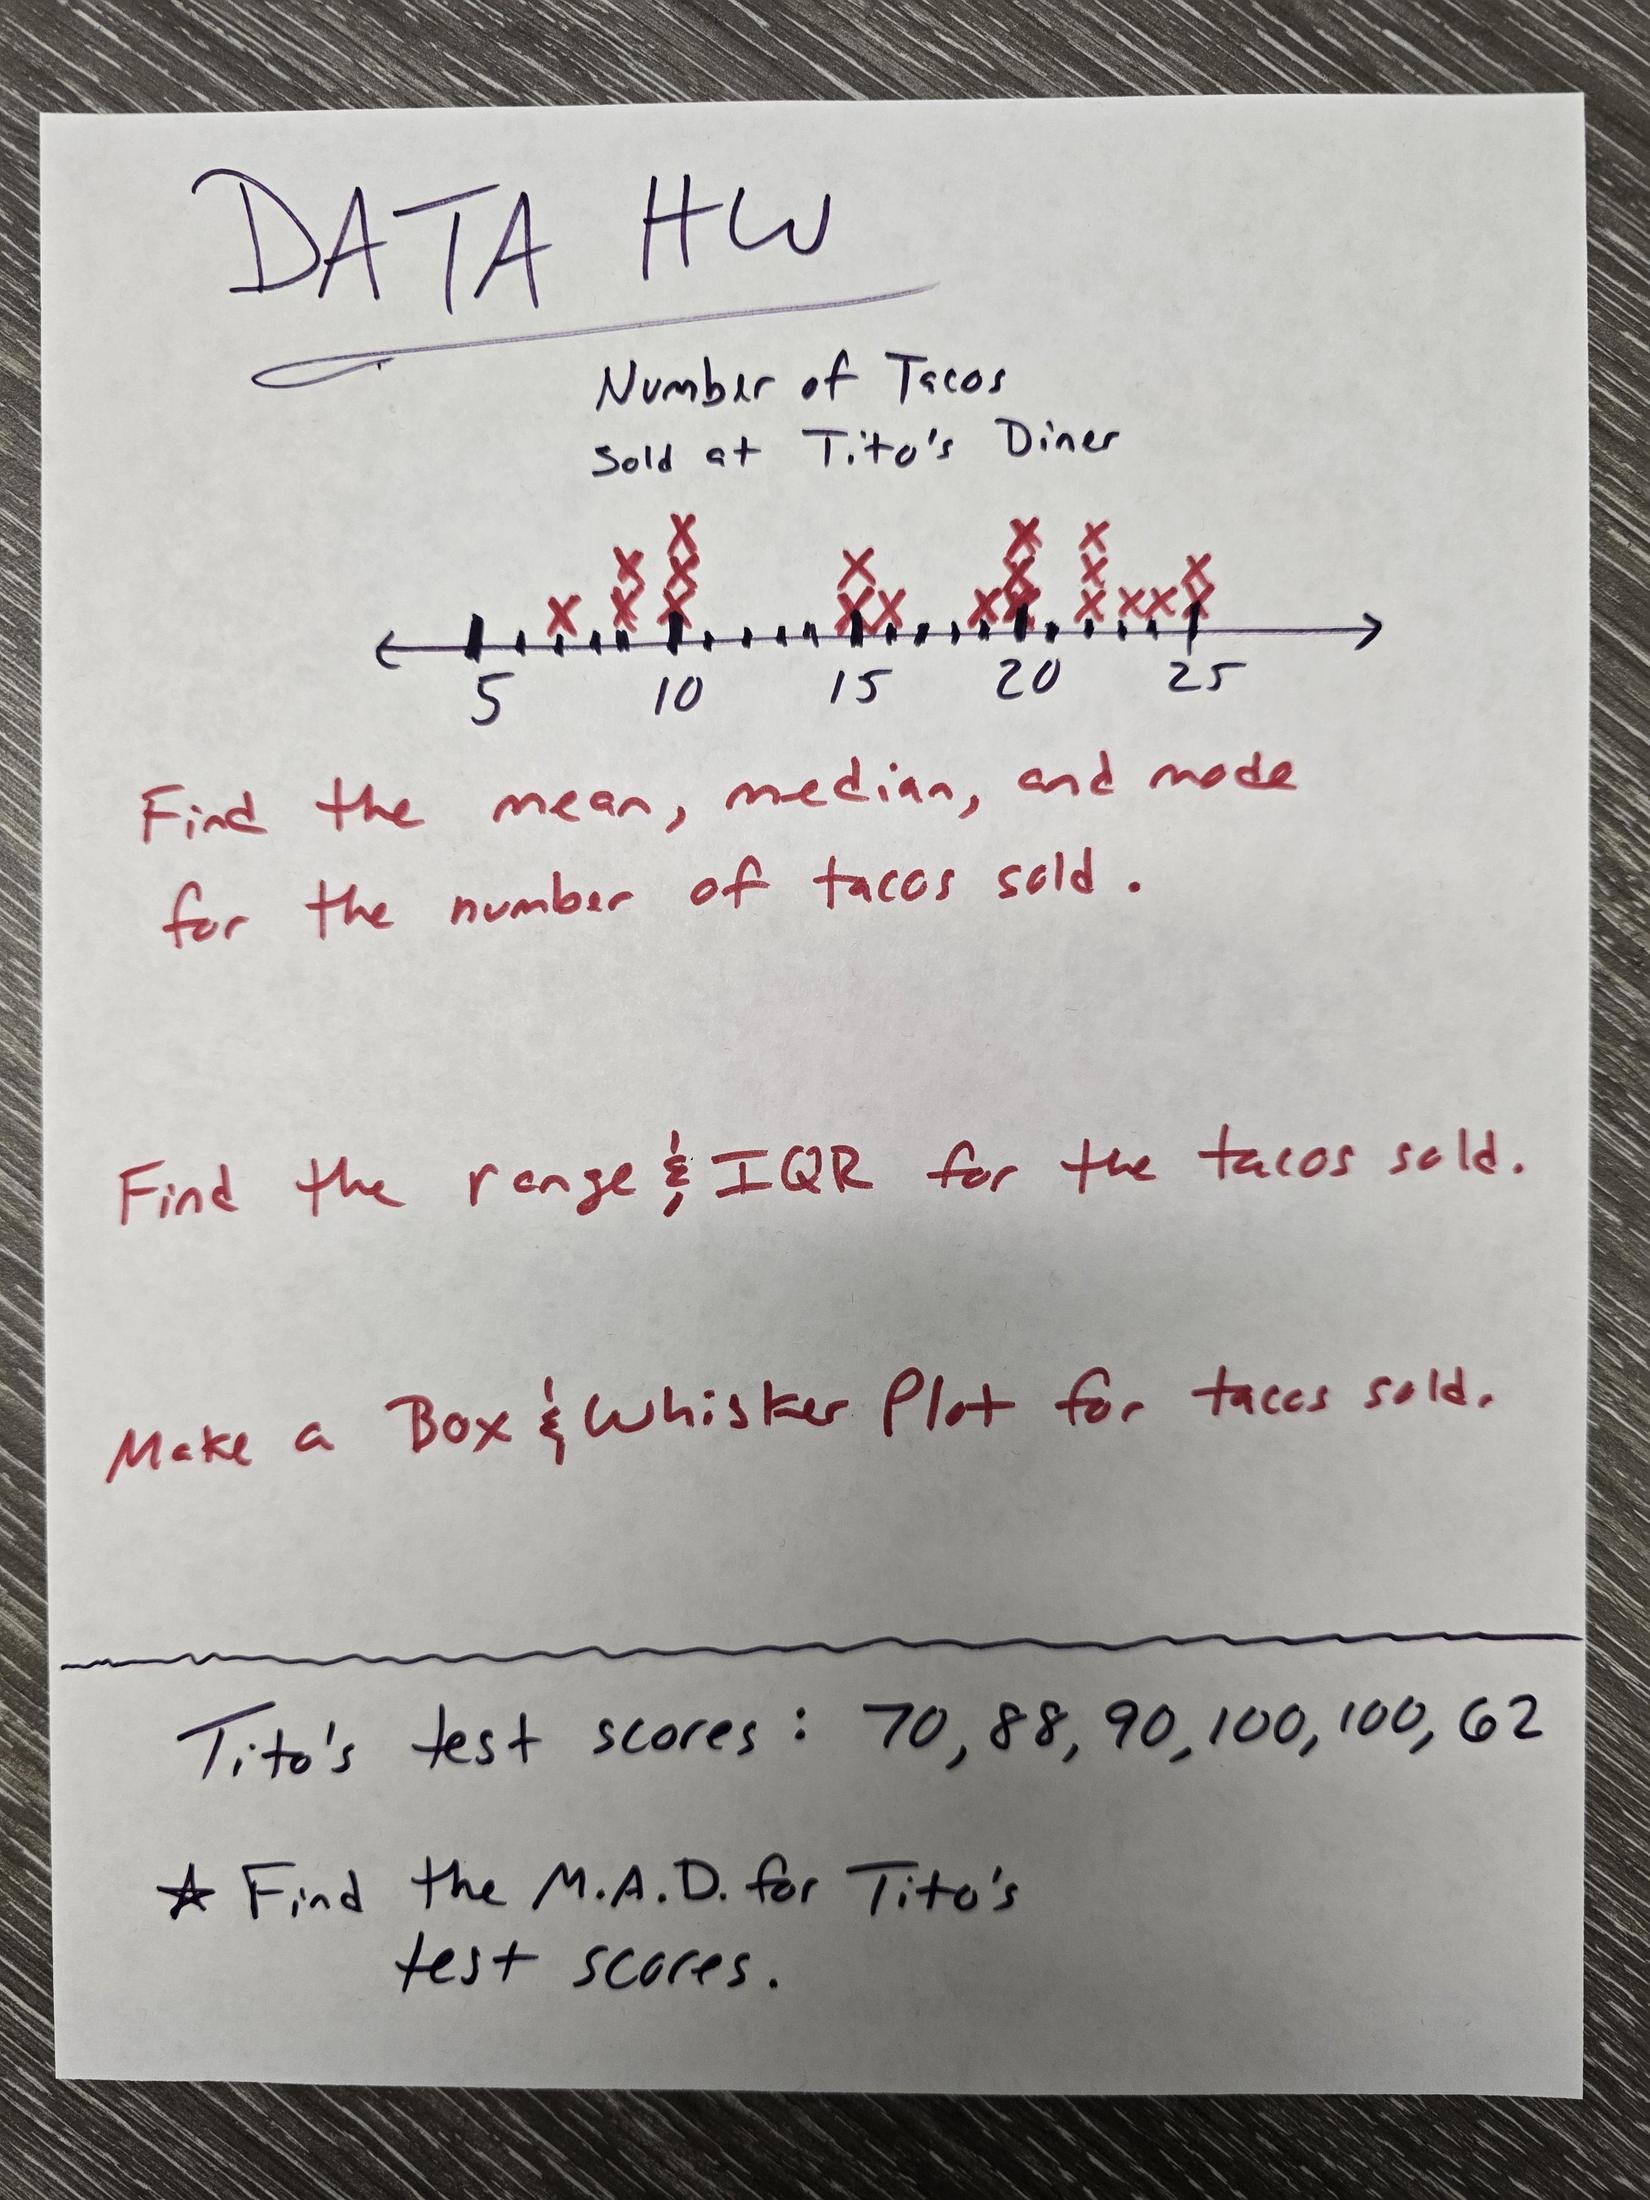 DATA HW
Number of Tacos
Sold at Tito's Diner
5 10 15 20 25
Find the mean, median, and mode
for the number of tacos sold.
Find the range & IQR for the tacos sold.
Make a Box & Whisker Plot for tacos sold.
Tito's test scores: 70, 88, 90, 100, 100, 62
☆ Find the M.A.D. for Tito's
test scores.